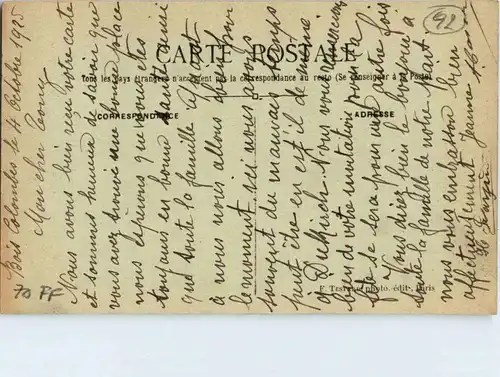 92
CARTE POSTALE
Tous les pays étrangers n'acceptent pas la correspondance au recto (Se renseigner à la Poste)
CORRESPONDANCE
ADRESSE
F. Testard photo. édit., Paris
70 FF
Bois Colombes le 4 Octobre 1905
Mon cher
Nous avons bien reçu votre carte
et sommes heureux de savoir que
vous avez trouvé une bonne place
nous espérons que vous êtes
toujours en bonne santé ainsi
que toute la famille quant
à nous nous allons bien pour
le moment ici nous avons
souvent du mauvais temps
peut être en est il de même
à Dunkirch. Nous vous remercions
bien de votre invitation pour la
fête se sera pour une autre fois
Vous direz bien le bonjour à
toute la famille de notre part
nous vous embrassons bien
affectueusement Jeanne